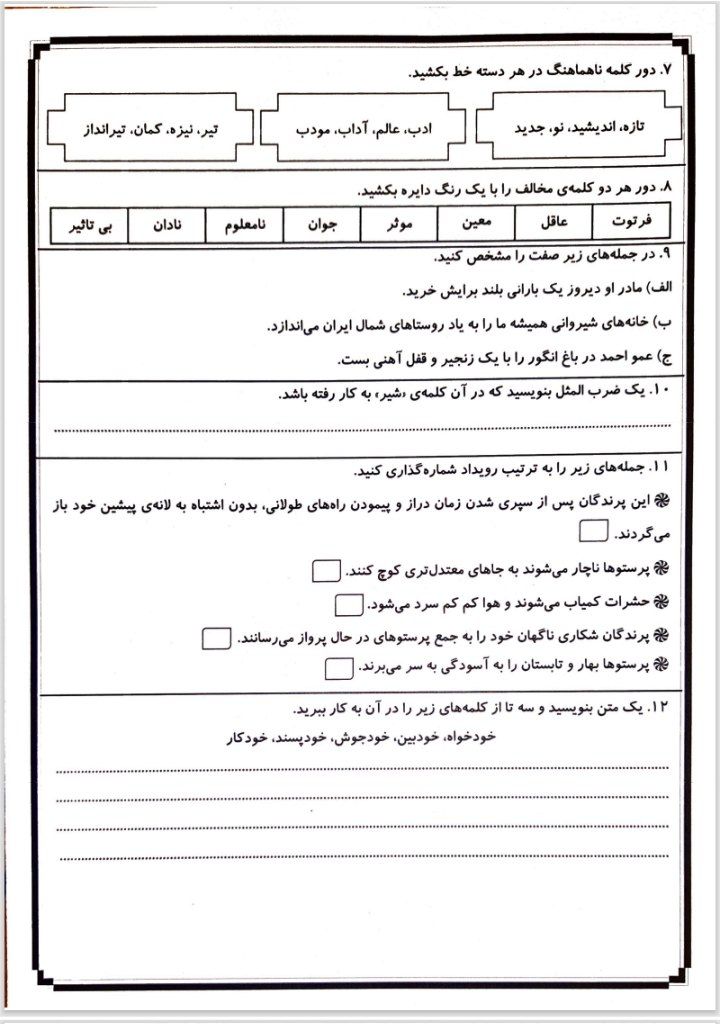 ۷. دور کلمه ناهماهنگ در هر دسته خط بکشید.
تازه، اندیشید، نو، جدید
ادب، عالم، آداب، مودب
تیر، نیزه، کمان، تیرانداز
۸. دور هر دو کلمه‌ی مخالف را با یک رنگ دایره بکشید.
فرتوت عاقل معین موثر جوان نامعلوم نادان بی تاثیر
۹. در جمله‌های زیر صفت را مشخص کنید.
الف) مادر او دیروز یک بارانی بلند برایش خرید.
ب) خانه‌های شیروانی همیشه ما را به یاد روستاهای شمال ایران می‌اندازد.
ج) عمو احمد در باغ انگور را با یک زنجیر و قفل آهنی بست.
۱۰. یک ضرب المثل بنویسید که در آن کلمه‌ی «شیر» به کار رفته باشد.
۱۱. جمله‌های زیر را به ترتیب رویداد شماره‌گذاری کنید.
این پرندگان پس از سپری شدن زمان دراز و پیمودن راه‌های طولانی، بدون اشتباه به لانه‌ی پیشین خود باز
می‌گردند.
پرستوها ناچار می‌شوند به جاهای معتدل‌تری کوچ کنند.
حشرات کمیاب می‌شوند و هوا کم کم سرد می‌شود.
پرندگان شکاری ناگهان خود را به جمع پرستوهای در حال پرواز می‌رسانند.
پرستوها بهار و تابستان را به آسودگی به سر می‌برند.
۱۲. یک متن بنویسید و سه تا از کلمه‌های زیر را در آن به کار ببرید.
خودخواه، خودبین، خودجوش، خودپسند، خودکار